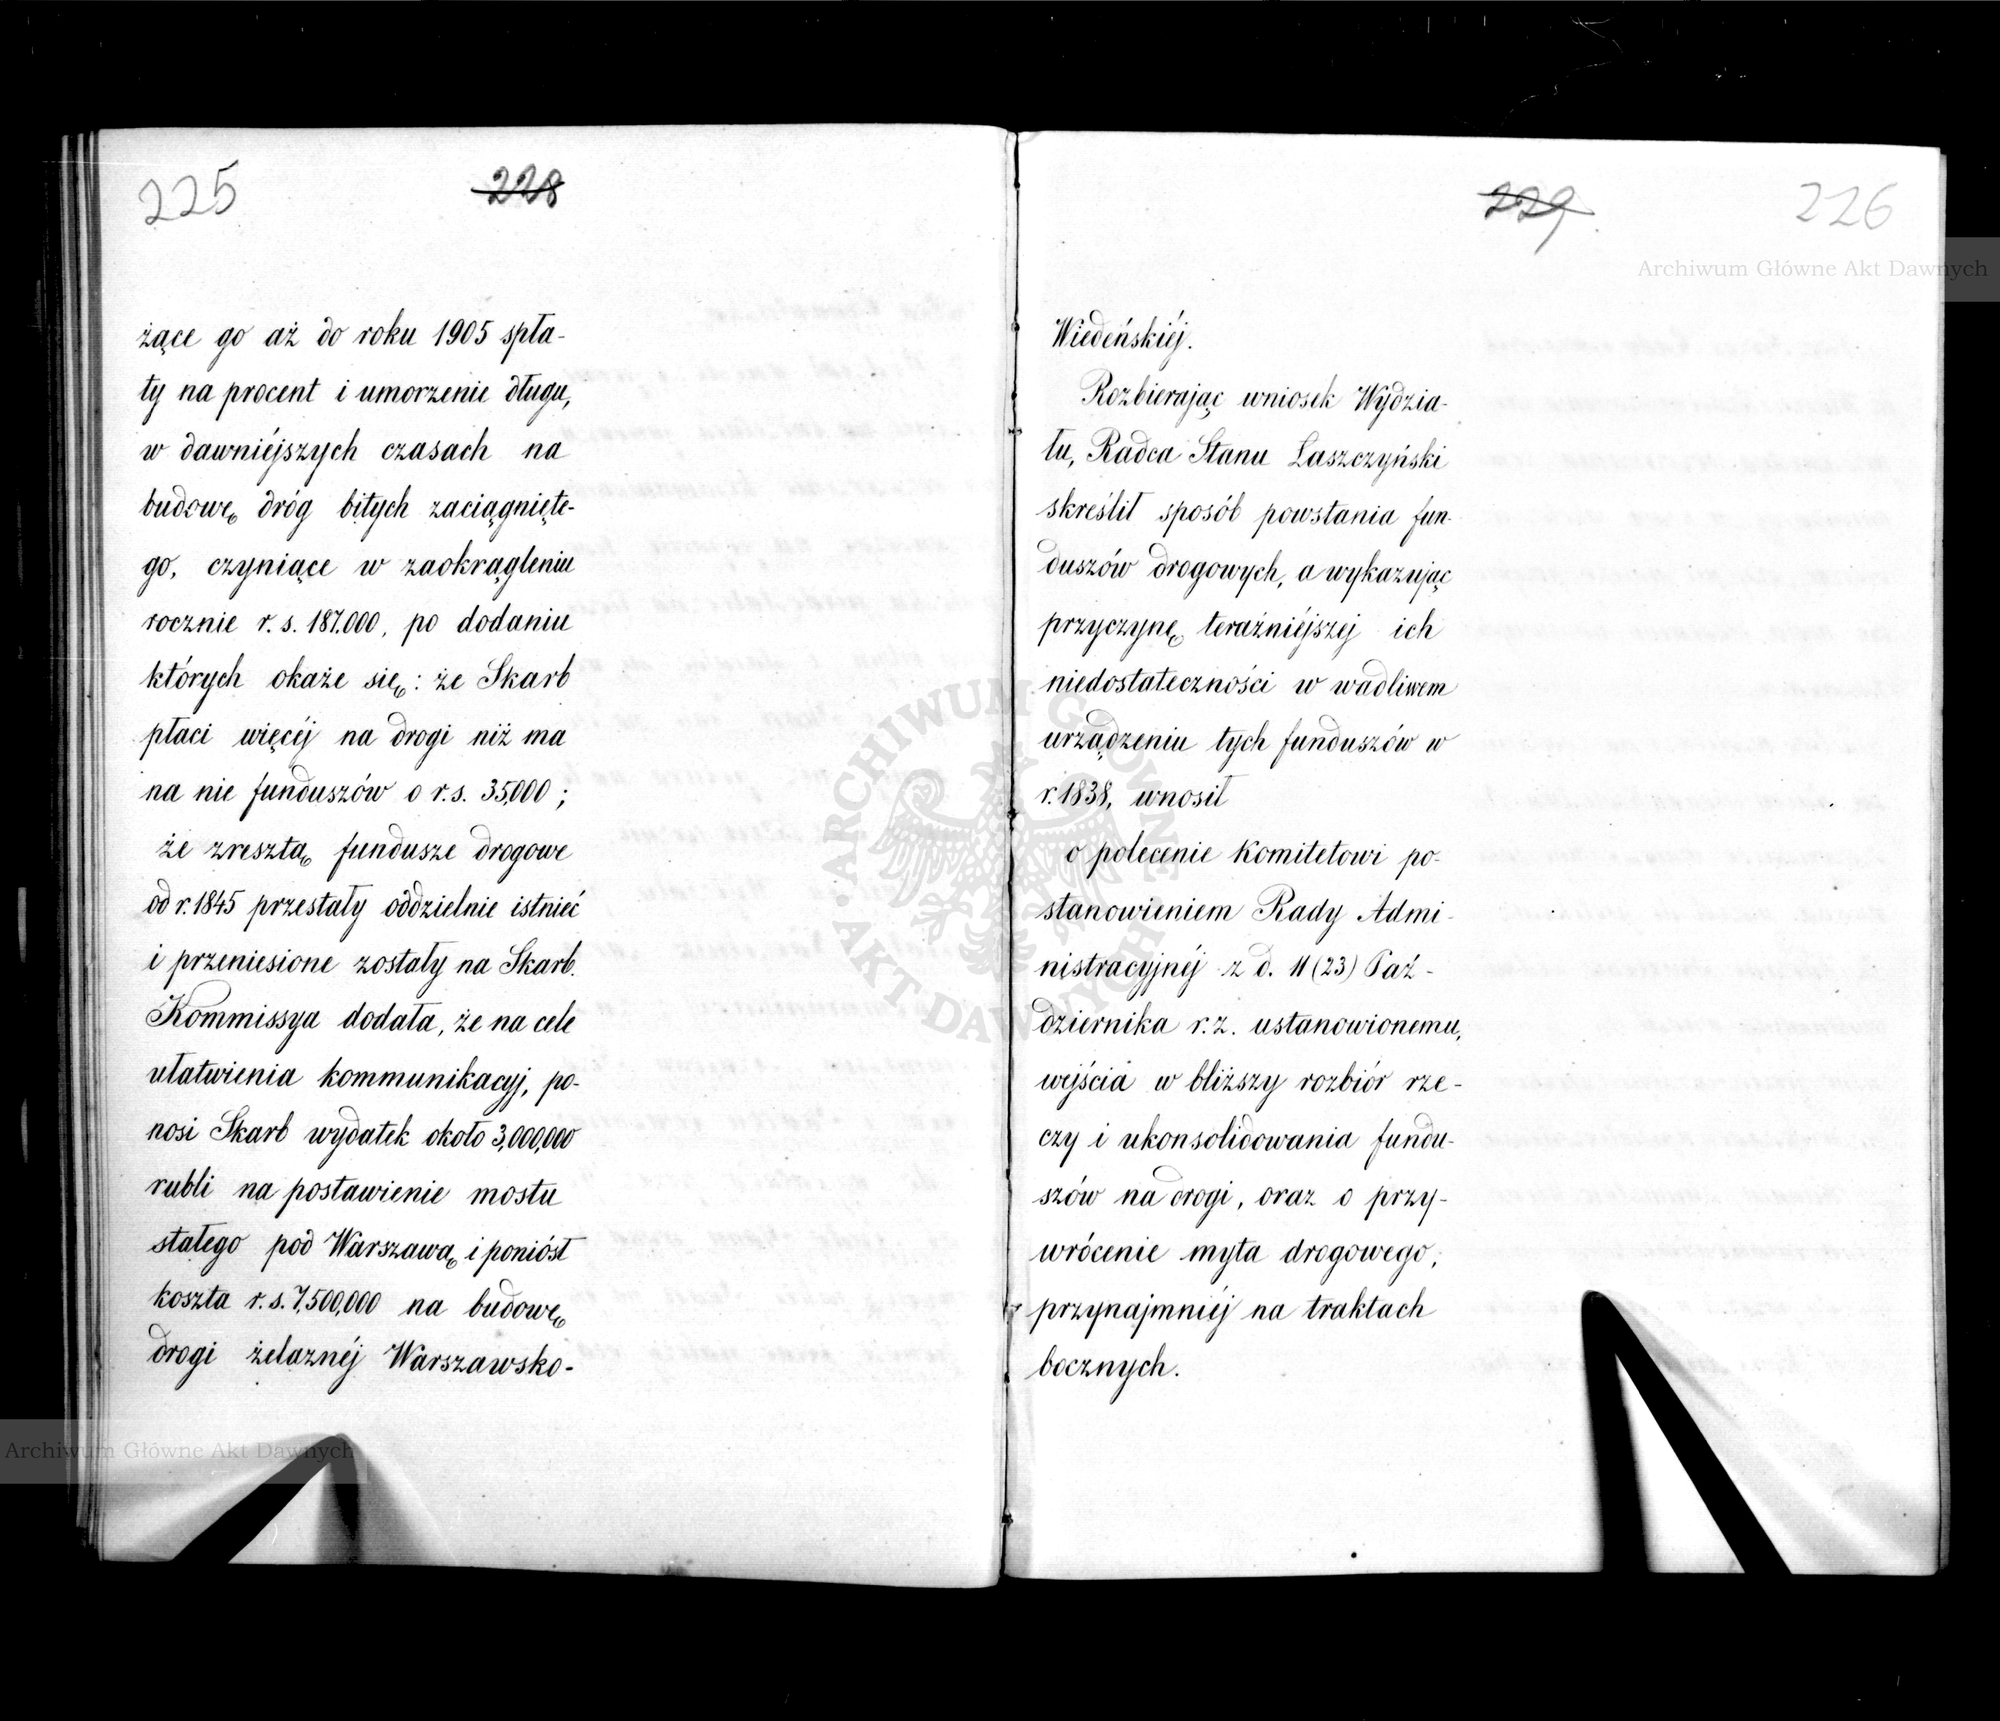 225
228
żące go aż do roku 1905 spła-
ty na procent i umorzenie długu,
w dawniéjszych czasach na
budowę dróg bitych zaciągnięte-
go, czyniące w zaokrągleniu
rocznie r. s. 187.000, po dodaniu
których okaże się: że Skarb
płaci więcéj na drogi niż ma
na nie funduszów o r. s. 35,000;
że zresztą fundusze drogowe
od r. 1845 przestały oddzielnie istnieć
i przeniesione zostały na Skarb.
Kommissya dodała, że na cele
ułatwienia kommunikacyj, po-
nosi Skarb wydatek około 3,000,000
rubli na postawienie mostu
stałego pod Warszawą i poniósł
koszta r. s. 7,500,000 na budowę
drogi żelaznéj Warszawsko-
229
226
Archiwum Główne Akt Dawnych
Wiedeńskiéj.
Rozbierając wniosek Wydzia-
łu, Radca Stanu Łaszczyński
skreślił sposób powstania fun-
duszów drogowych, a wykazując
przyczynę teraźniéjszej ich
niedostateczności w wadliwem
urządzeniu tych funduszów w
r. 1838, wnosił
o polecenie Komitetowi po-
stanowieniem Rady Admi-
nistracyjnéj z d. 11 (23) Paź-
dziernika r. z. ustanowionemu,
wejścia w bliższy rozbiór rze-
czy i ukonsolidowania fundu-
szów na drogi, oraz o przy-
wrócenie myta drogowego,
przynajmniéj na traktach
bocznych.
ARCHIWUM GŁÓWNE AKT DAWNYCH
Archiwum Główne Akt Dawnych